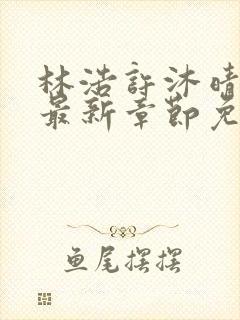 林浩許沐晴
最新章節免
鱼尾摆摆